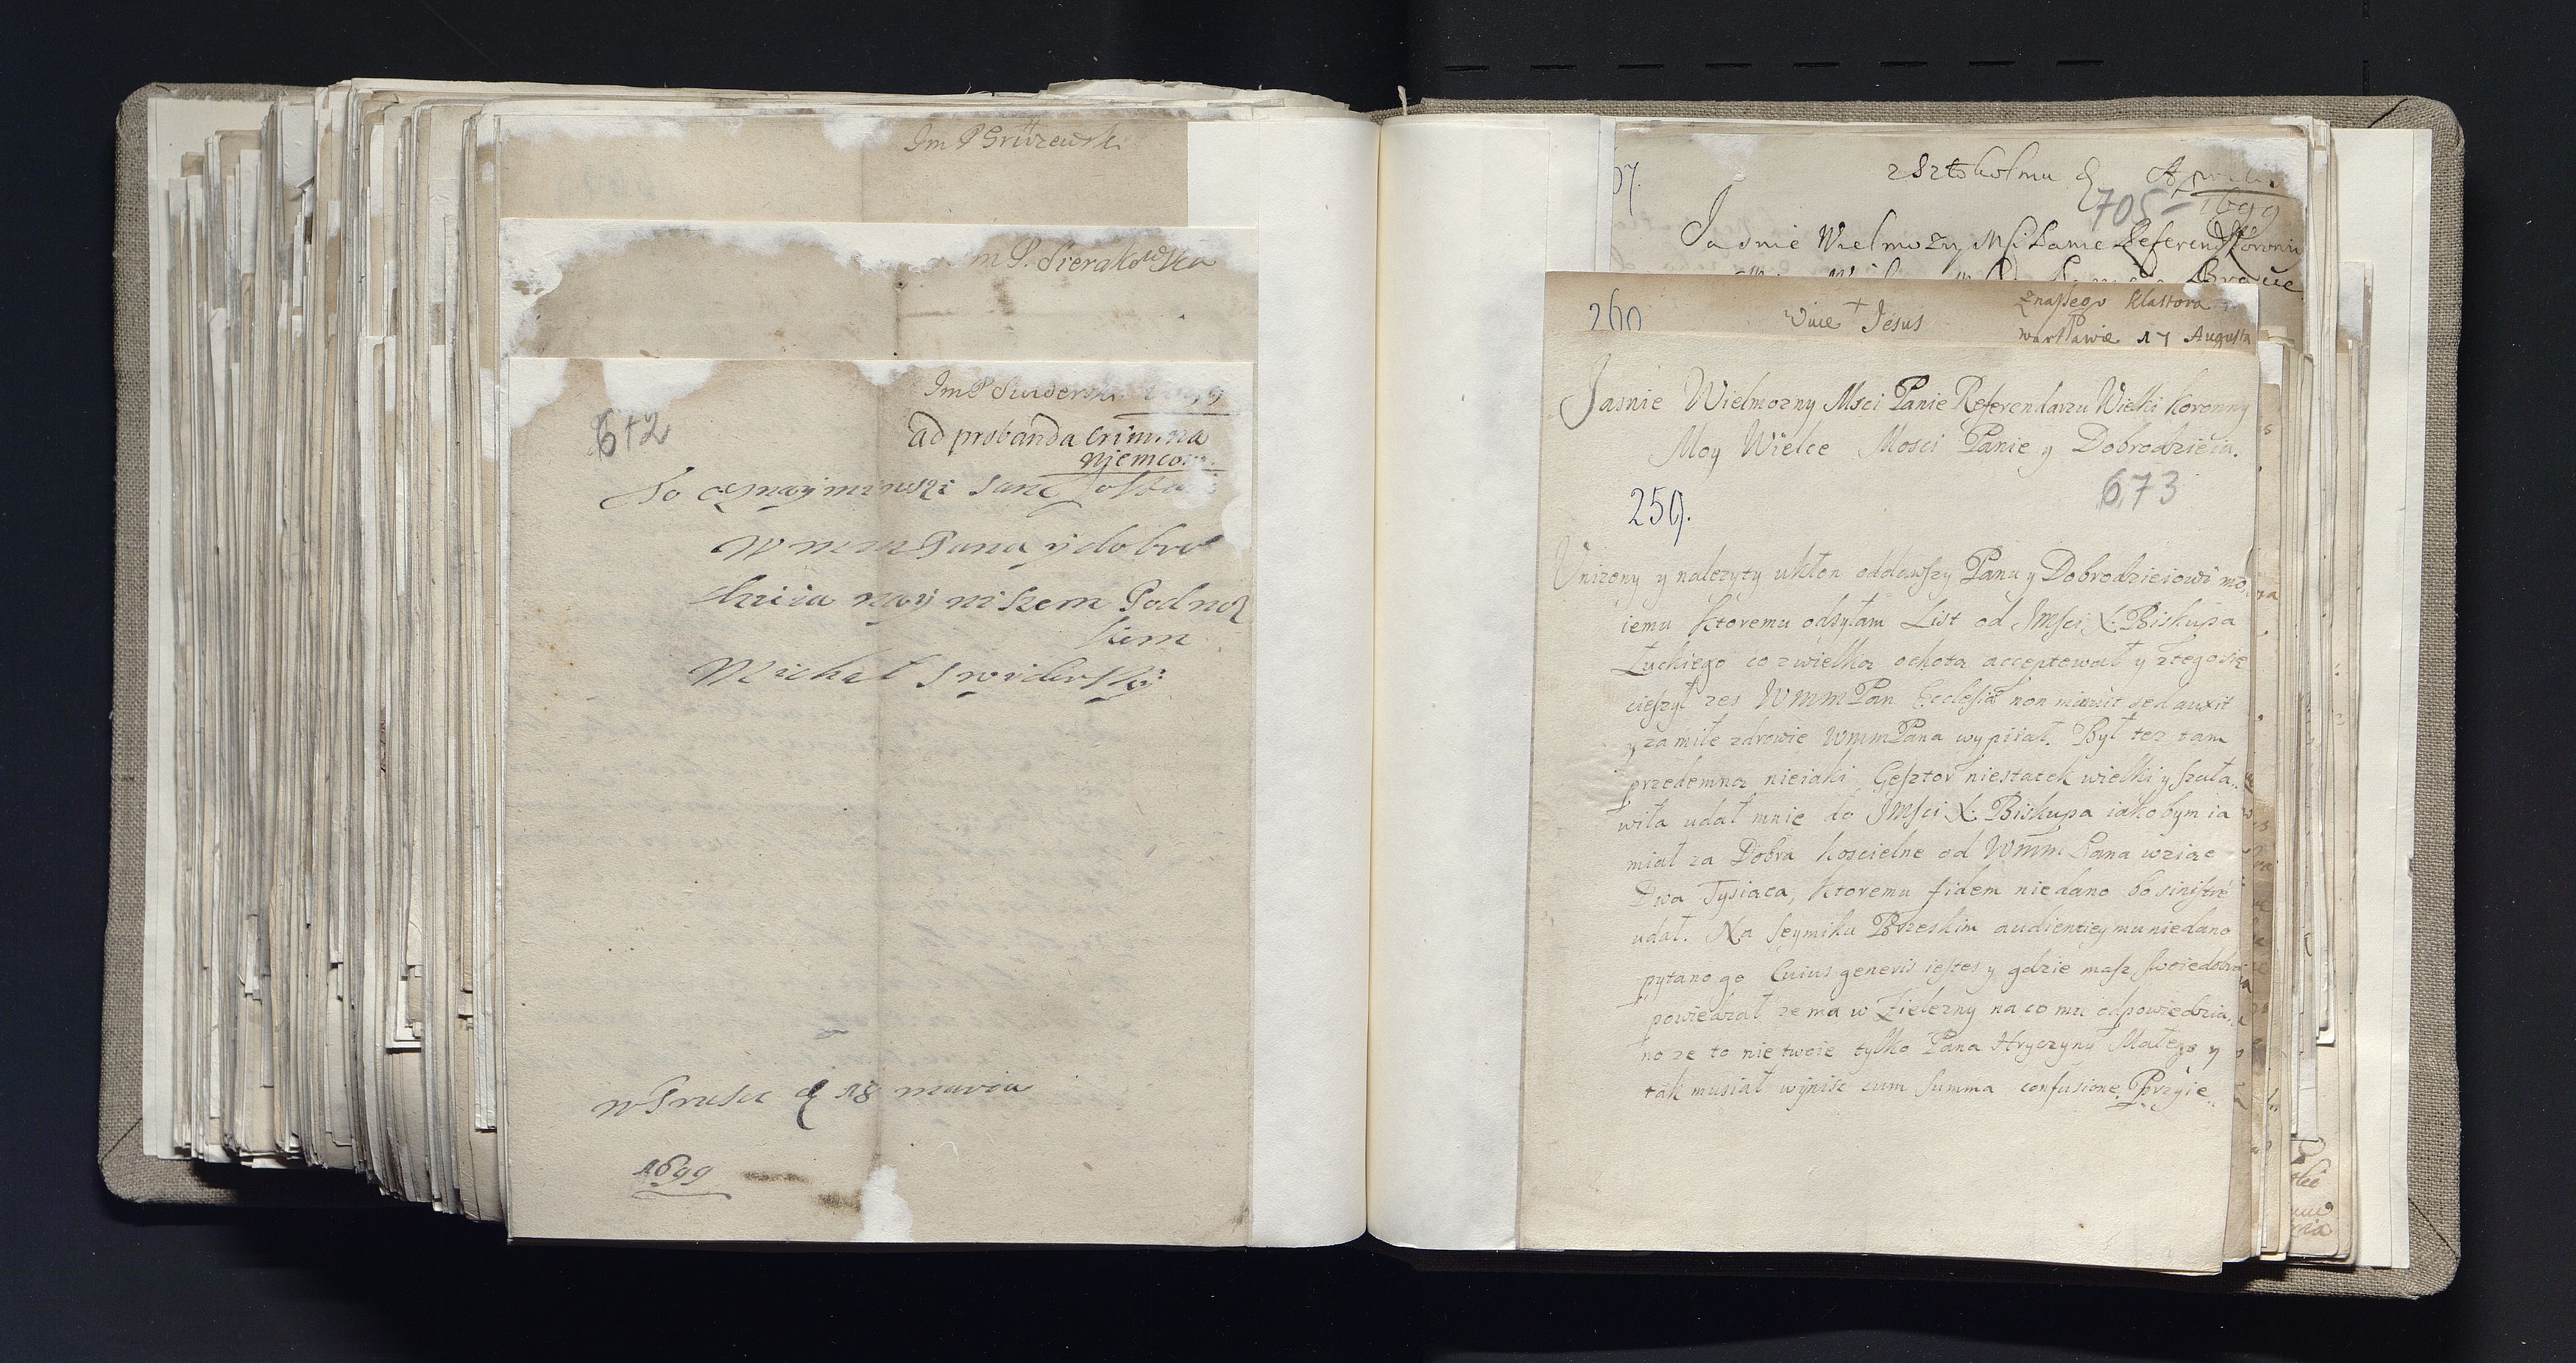 Im P Gruzewski
m P. Sierakowska
Im P Swiderski
672
ad probanda crimina
Njemcow
Pana y dobro
nay niszem Podnoz
kiem
Michał Swiderski
d 18
1699
z Sztokolmu d Aprilis
705 1699
Jasnie Wielmozny Msci Panie Referend Koronny
260
Vive + Jesus
z naszego Klasztora
warszawie 17 Augusta
Jasnie Wielmozny Msci Panie Referendarzu Wielki Koronny
Moy Wielce Mosci Panie y Dobrodzieiu.
673
259.
Unizony y nalezyty ukłon oddawszy Panu y Dobrodzieiowi mo
iemu ktoremu odsyłam List od JMsci X. Biskupa
Łuckiego co z wielka ochota acceptował y z tego sie
cieszył zes WMMPan Ecclesiæ non minuit sed auxit
y za miłe zdrowie WMMPana wypiiał. Był tez tam
przedemna nieiaki Gesztor niestatek wielki y szala
wiła udał mnie do JMsci X. Biskupa iakobym ia
miał za Dobra koscielne od WMM Pana wziac
Dwa Tysiaca, ktoremu fidem nie dano bo sinistre
udał. Na Seymiku Brzeskim audientiey mu nie dano
pytano go Cuius generis iestes y gdzie masz swoie dobra
powiedział ze ma w Zielezny na co mu odpowiedzia
no ze to nie twoie tylko Pana Hryczyny Małego y
tak musiał wynisc cum summa confusione. Przyie